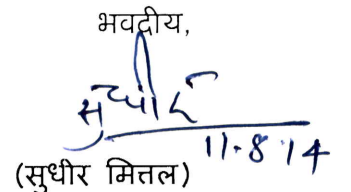 भवदीय,
सुधीर
11.8.14
(सुधीर मित्तल)